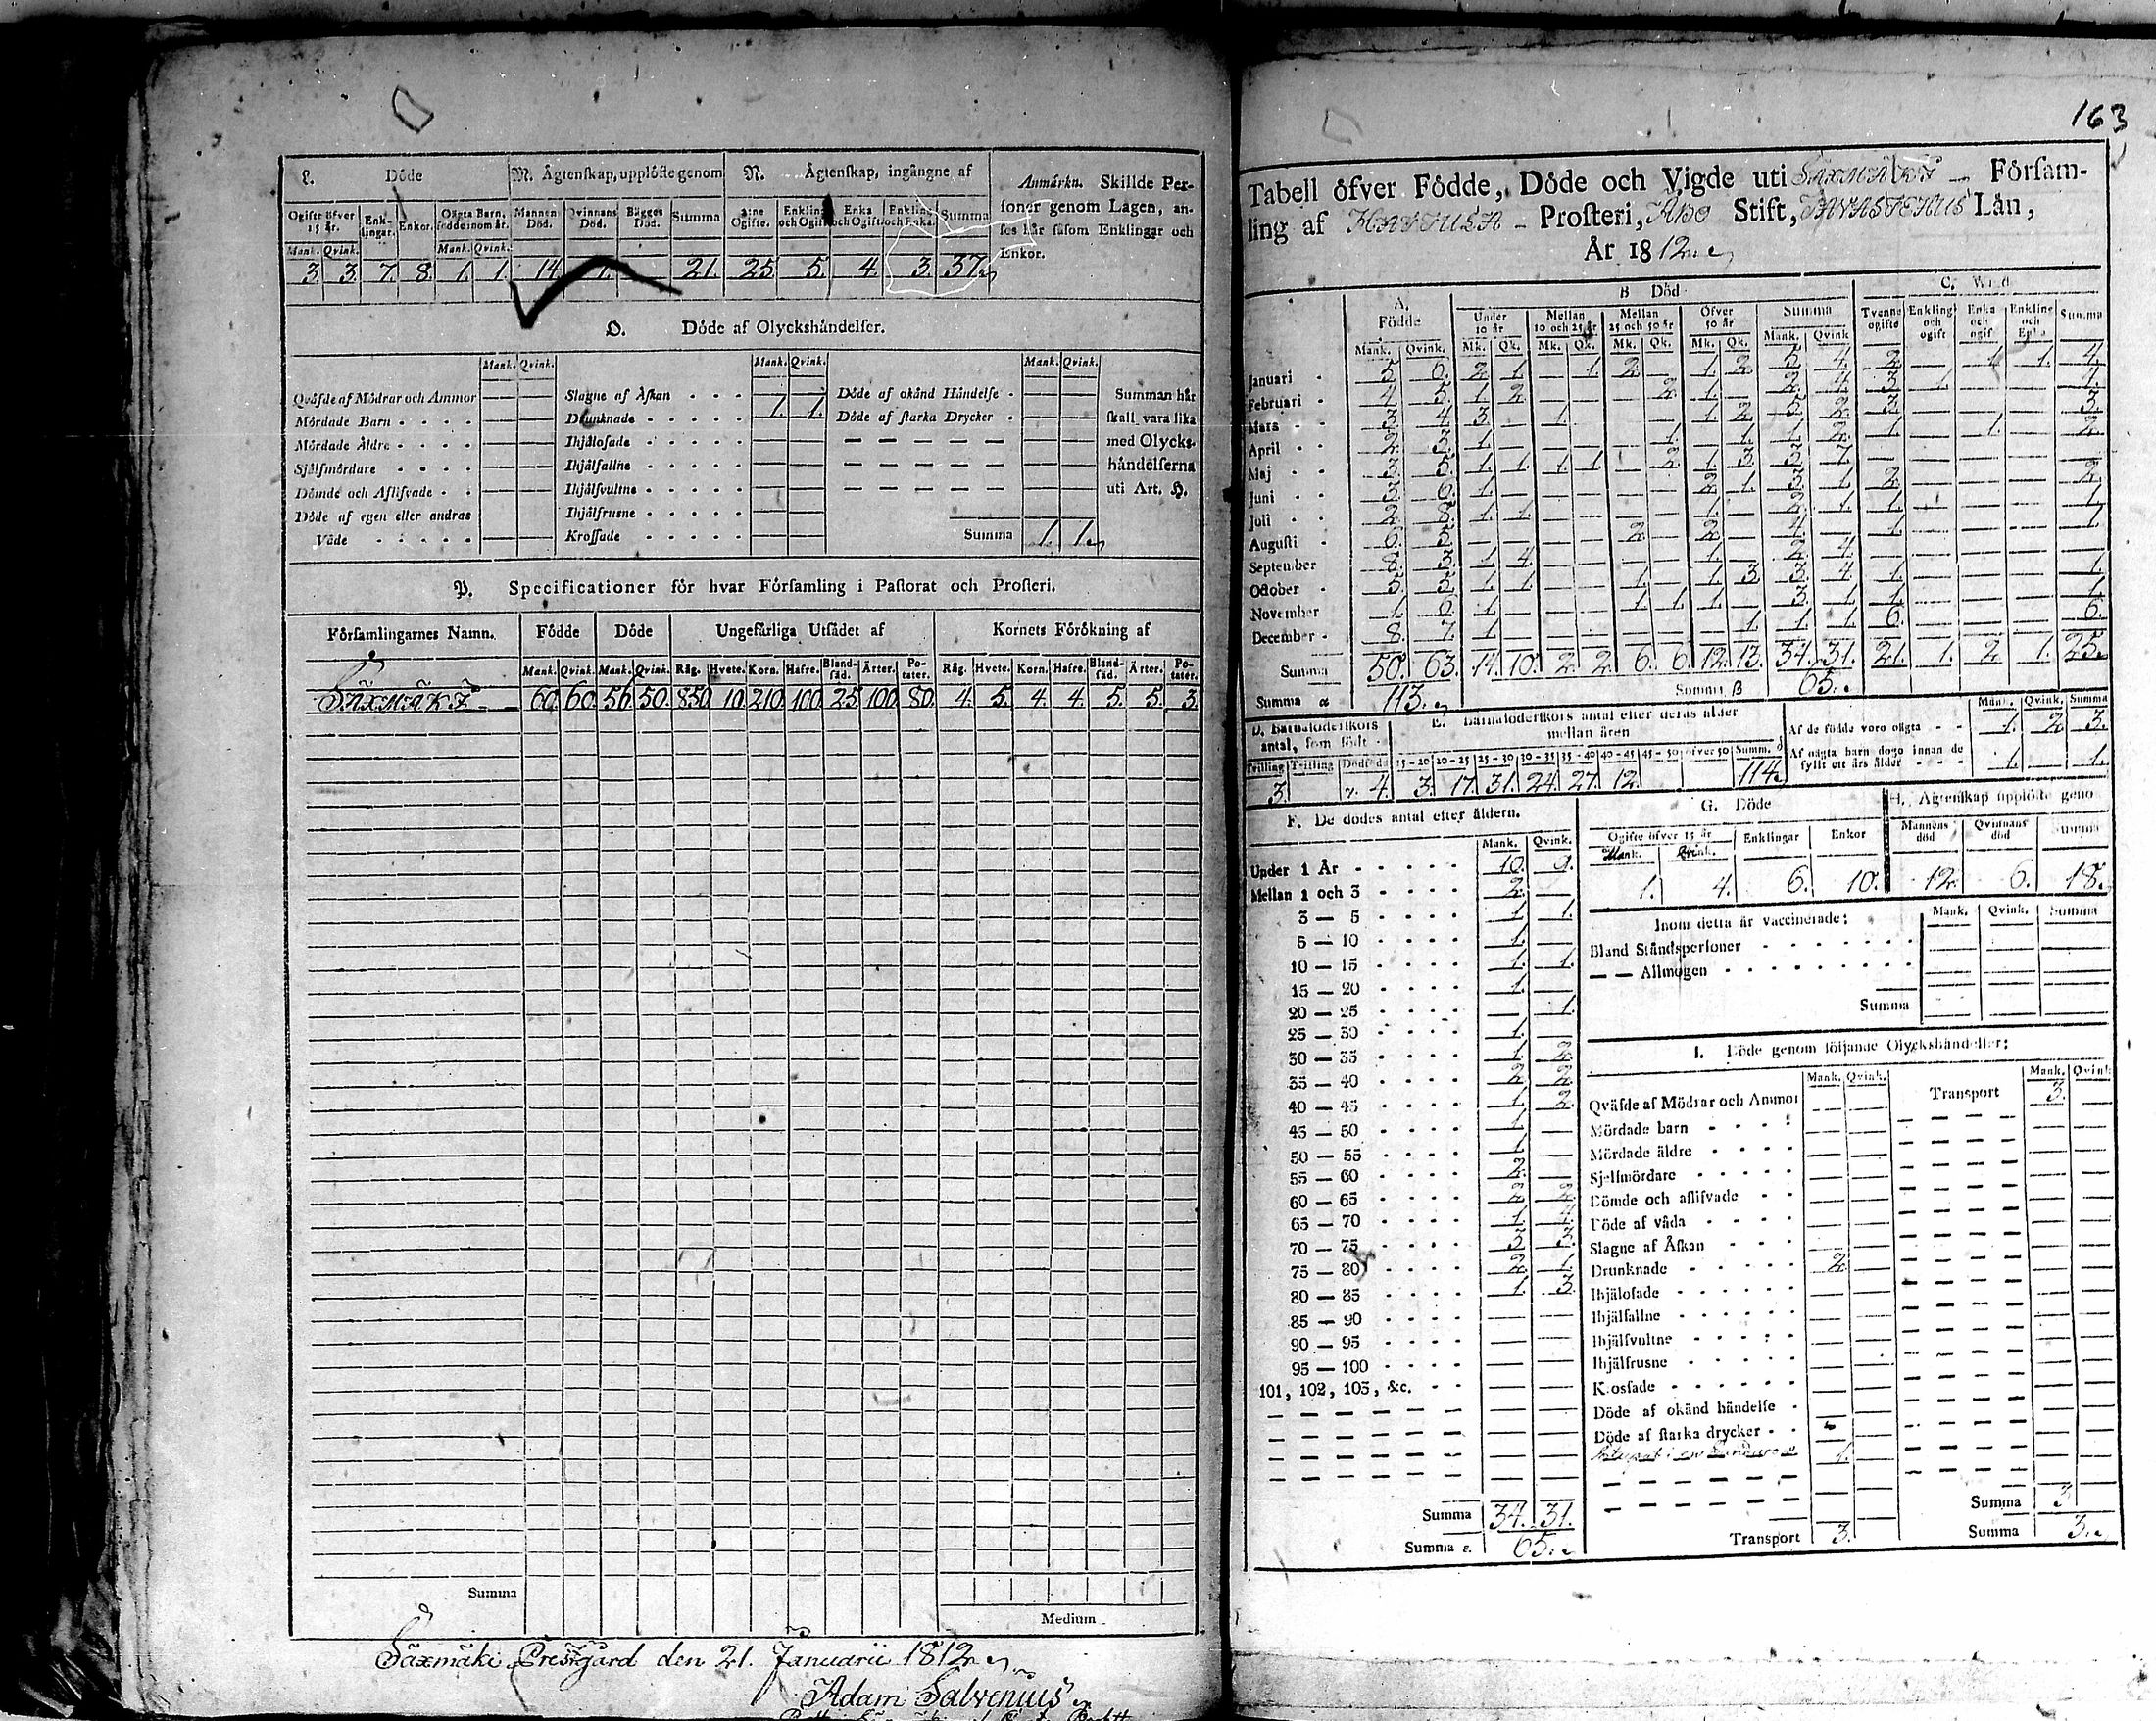 L. Döde
M. Ägtenskap, upplöste genom
N. Ägtenskap, ingångne af
Anmärkn. Skillde Personer
genom Lagen, anses
här såsom Enklingar och
Enkor.
Ogifte öfver 15 år. Enklingar. Enkor. Oägta Barn, födde inom år. Mannens Död. Qvinnans Död. Bägges Död. Summa Ogifte. Enkling och Ogift. Enka och Ogift. Enkling och Enka. Summa
Mank. Qvink. Mank. Qvink.
3. 3. 7. 8. 1. 1. 14. 21. 25. 5. 4. 3. 37.
O. Döde af Olyckshändelser.
Mank. Qvink. Mank. Qvink. Mank. Qvink.
Qväfde af Mödrar och Ammor Slagne af Åskan Döde af okänd Händelse Summan här
Mördade Barn Drunknade 1. 1. Döde af starka Drycker skall vara lika
Mördade Äldre Ihjälosade med Olycks-
Sjelfmördare Ihjälfallne händelserna
Dömde och Aflifvade Ihjälsvultne uti Art. H.
Döde af egen eller andras Ihjälfrusne
Våde Krossade Summa 1. 1.
P. Specificationer för hvar Församling i Pastorat och Prosteri.
Församlingarnes Namn. Födde Döde Ungefärliga Utsädet af Kornets Förökning af
Mank. Qvink. Mank. Qvink. Råg. Hvete. Korn. Hafre. Blandsäd. Ärter. Potater. Råg. Hvete. Korn. Hafre. Blandsäd. Ärter. Potater.
SÄXMÄKI 60. 60. 56. 50. 850. 10. 210. 100. 25. 100. 80. 4. 5. 4. 4. 5. 5. 3.
Summa
Medium
Säxmäki Prestgård den 21. Januarii 1812
Adam Salvenius
163
Tabell öfver Födde, Döde och Vigde uti SÄXMÄKI Församling
af Prosteri, ÅBO Stift, TAVASTEHUS Län,
År 1812.
A. Födde B Död C. Wigd
Under 10 år Mellan 10 och 25 år Mellan 25 och 50 år Öfver 50 år Summa Tvenne ogifte Enkling och ogift Enka och ogift Enkling och Enka Summa
Mank. Qvink. Mk. Qk. Mk. Qk. Mk. Qk. Mk. Qk. Mank. Qvink
Januari 5. 6. 2. 1. 1. 2. 1. 2. 5. 4. 2. 1. 1. 4.
Februari 4. 5. 1. 2. 2. 1. 2. 4. 3. 1. 4.
Mars 3. 4. 3. 1. 1. 2. 5. 2. 3. 3.
April 1. 1. 1. 1. 2. 1. 1. 2.
Maj 1. 1. 1. 1. 2. 1. 3. 3. 7.
Juni 6. 1. 2. 1. 3. 1. 2. 2.
Juli 2. 8. 1. 1. 1. 2. 1. 1. 1.
Augusti 6. 2. 2. 4. 1. 1.
September 8. 3. 1. 4. 1. 2. 4.
October 1. 1. 1. 1. 3. 3. 4. 1. 1.
November 1. 6. 1. 1. 1. 1. 3. 1. 1. 1.
December 8. 7. 1. 1. 1. 1. 6. 6.
Summa 50. 63. 14. 10. 2. 2. 6. 6. 12. 13. 34. 31. 21. 1. 2. 1. 25.
Summa α 113. Summa β 65.
D. Barnaföderskors antal, som födt
E. Barnaföderskors antal efter deras ålder mellan åren
Mank. Qvink. Summa
Af de födde voro oägta 1. 2. 3.
Af oägta barn dogo innan de fyllt ett års ålder 1. 1.
Tvilling Trilling Dödfödd 15-20 20-25 25-30 30-35 35-40 40-45 45-50 öfver 50 Summ.
3. 4. 3. 17. 31. 24. 27. 12. 114.
F. De dödes antal efter åldern.
Mank. Qvink.
Under 1 År 10. 9.
Mellan 1 och 3 2.
3 — 5 1. 1.
5 — 10 1.
10 — 15 1. 1.
15 — 20 1.
20 — 25 1.
25 — 30 1.
30 — 35 1. 2.
35 — 40 2. 2.
40 — 45 1. 2.
45 — 50 1.
50 — 55 1.
55 — 60 2.
60 — 65 2. 2.
65 — 70 1. 4.
70 — 75 3. 3.
75 — 80 2. 1.
80 — 85 1. 3.
85 — 90
90 — 95
95 — 100
101, 102, 103, &c.
Summa 34. 31.
Summa ε. 65.
G. Döde
H. Ägtenskap upplöste geno
Ogifte öfver 15 år Enklingar Enkor Mannens död Qvinnans död Summa
Mank. Qvink.
1. 4. 6. 10. 12. 6. 18.
Inom detta år vaccinerade: Mank. Qvink. Summa
Bland Ståndspersoner
— — Allmogen
Summa
I. Döde genom följande Olyckshändelser:
Mank. Qvink. Mank. Qvink
Qväfde af Mödrar och Ammor Transport 3.
Mördade barn
Mördade äldre
Sjelfmördare
Dömde och aflifvade
Döde af våda
Slagne af Åskan
Drunknade 2.
Ihjälosade
Ihjälfallne
Ihjälsvultne
Ihjälfrusne
Krossade
Döde af okänd händelse
Döde af starka drycker
1.
Summa 3
Transport 3. Summa 3.